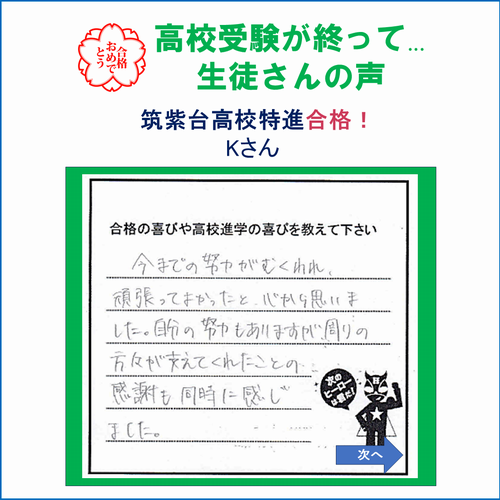 合格
おめで
とう
高校受験が終って...
生徒さんの声
筑紫台高校特進合格！
Kさん
合格の喜びや高校進学の喜びを教えて下さい
今までの努力がむくわれ、
頑張ってよかったと、心から思いま
した。自分の努力もありますが周りの
方々が支えてくれたことの
感謝も同時に感じ
ました。
次の
ヒーロー
は君だ!
次へ